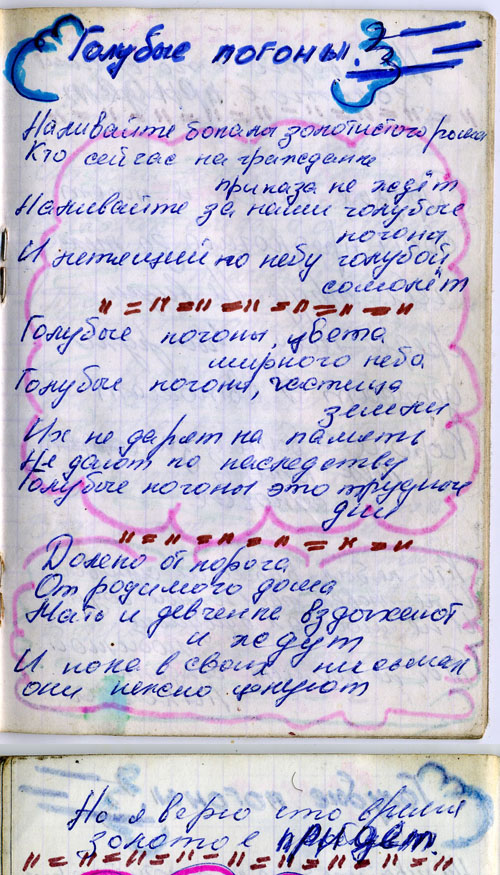 Голубые погоны.
Наливайте бокалы золотистого рома
Кто сейчас на гражданке
приказа не ждёт
Наливайте за наши голубые
погоны
И летящий по небу голубой
самолёт
" = " = " = " = " = " = "
Голубые погоны, цвета
мирного неба
Голубые погоны, частица
земли
Их не дарят на память
Не дают по наследству
Голубые погоны это трудные
дни
" = " = " = " = " = "
Далеко от порога
От родимого дома
Мать и девченка вздыхают
и ждут
И пока в своих письмах
они нежно целуют
Но я верю что время
золотое придёт.
" = " = " = " = " = " = " = "